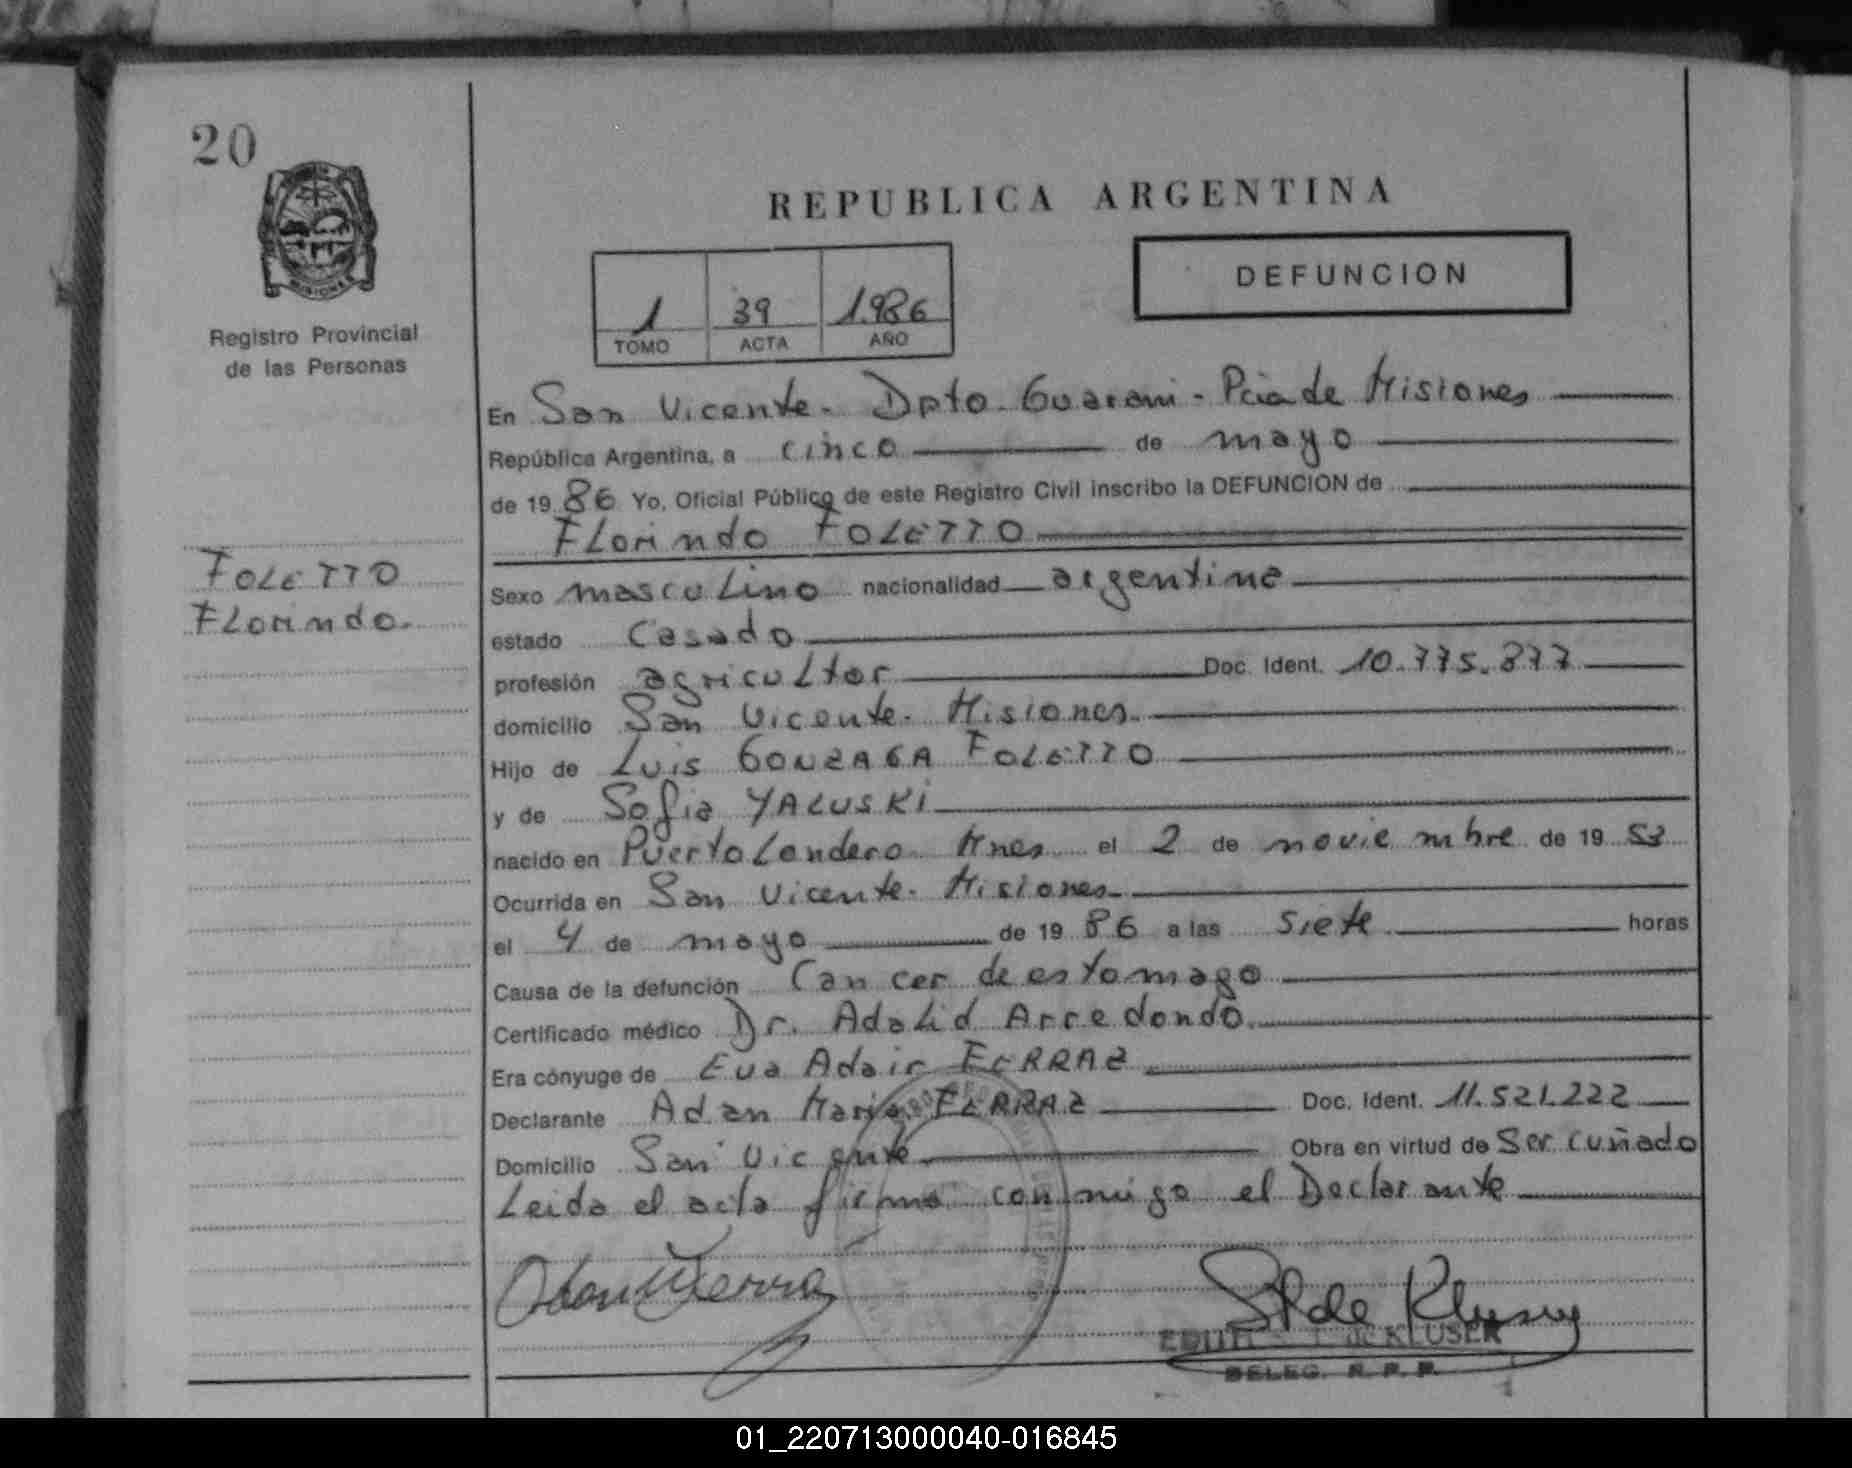 20
MISIONES
Registro Provincial
de las Personas
REPUBLICA ARGENTINA
DEFUNCION
1 39 1.986
TOMO ACTA AÑO
En San Vicente. Dpto. Guarani - Pcia de Misiones
República Argentina, a cinco de mayo
de 19 86 Yo, Oficial Público de este Registro Civil inscribo la DEFUNCION de
Florindo FOLETTO
FOLETTO
Florindo.
Sexo masculino nacionalidad argentina
estado Casado
profesión agricultor Doc. Ident. 10.775.877
domicilio San Vicente. Misiones.
Hijo de Luis GONZAGA FOLETTO
y de Sofia YALUSKI
nacido en Puerto Londero Mnes el 2 de noviembre de 19 53
Ocurrida en San Vicente. Misiones
el 4 de mayo de 19 86 a las siete horas
Causa de la defunción Cancer de estomago
Certificado médico Dr. Adalid Arredondo.
Era cónyuge de Eva Adair FERRAZ
Declarante Adan Mario FERRAZ Doc. Ident. 11.521.222
Domicilio San Vicente Obra en virtud de Ser cuñado
Leida el acta firma conmigo el Declarante
de KLUSER
DELEG. R. P. P.
01_220713000040-016845